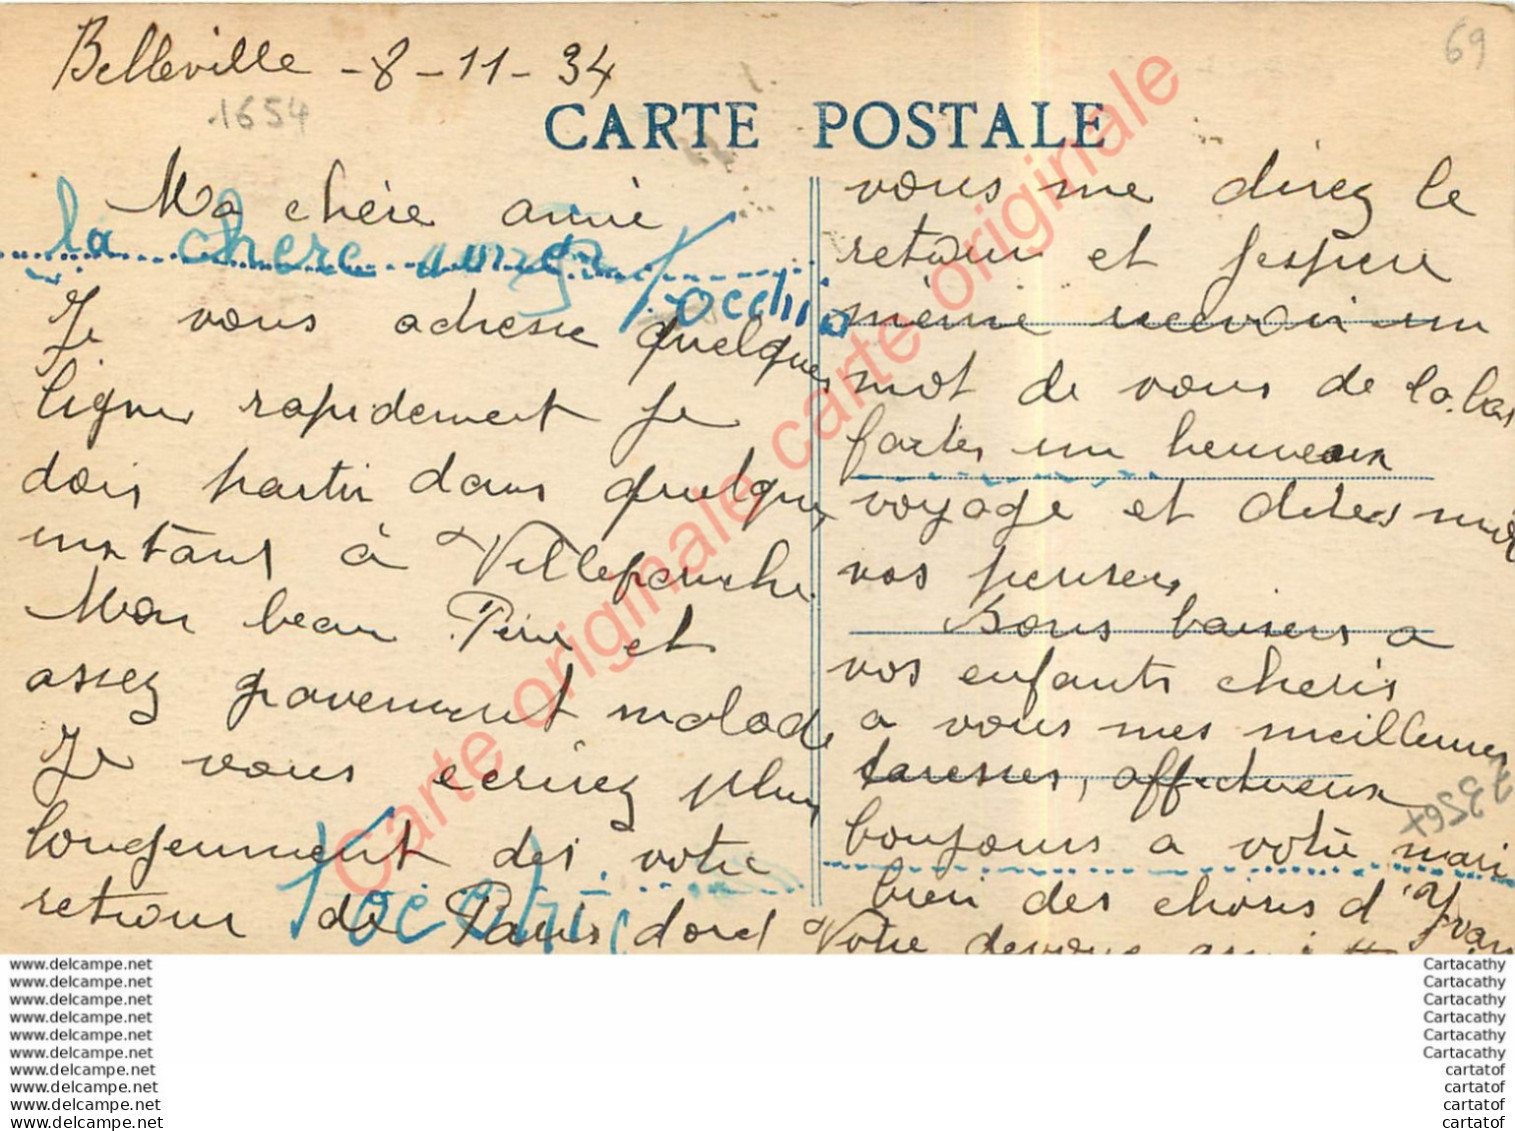 Belleville - 8 - 11 - 34
69
1654
CARTE POSTALE
Ma chère amie
la chere
Je vous adresse quelques
lignes rapidement je
dois partir dans quelques
instants à Villefranche
Mon beau Père et
assez gravement malade
Je vous ecrirez plus
longuement des votre
retour de Paris dord
vous me direz le
retour et j'espere
même recevoir un
mot de vous de la. bas
faites un heureux
voyage et dites moi
vos pensers
Bons baisers a
vos enfants cheris
a vous mes meilleures
caresses, affectueux
bonjours a votre mari
bien des choses d'Yvan
Votre
Carte originale carte originale carte originale
www.delcampe.net
www.delcampe.net
www.delcampe.net
www.delcampe.net
www.delcampe.net
www.delcampe.net
www.delcampe.net
www.delcampe.net
www.delcampe.net
www.delcampe.net
Cartacathy
Cartacathy
Cartacathy
Cartacathy
Cartacathy
Cartacathy
cartatof
cartatof
cartatof
cartatof